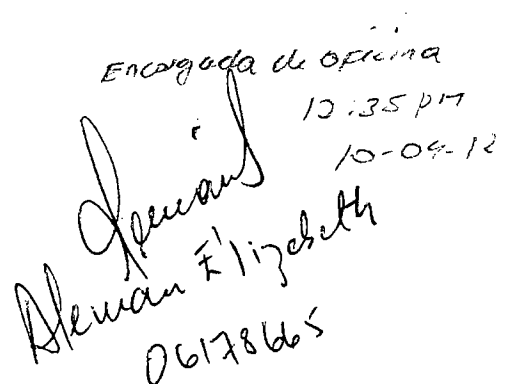 Encargada de oficina
12:35 pm
10-04-12
Alemán Elizabeth
06178665